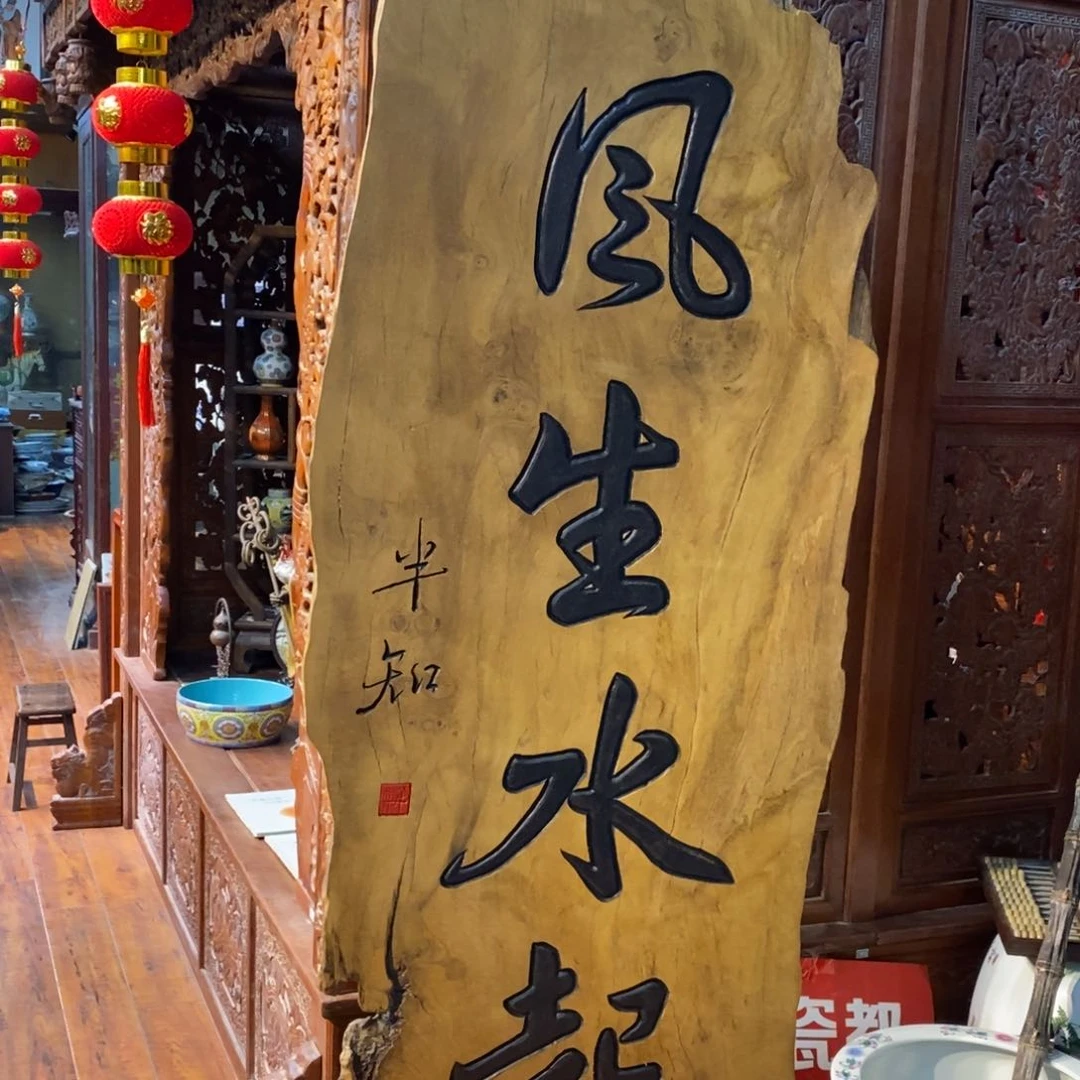 风生水起
半知
瓷都